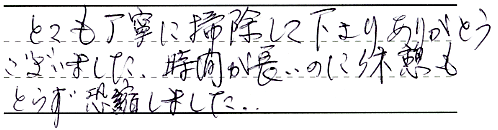 とても丁寧に掃除して下さりありがとう
ございました。時間が長いのに休憩も
とらず恐縮しました..